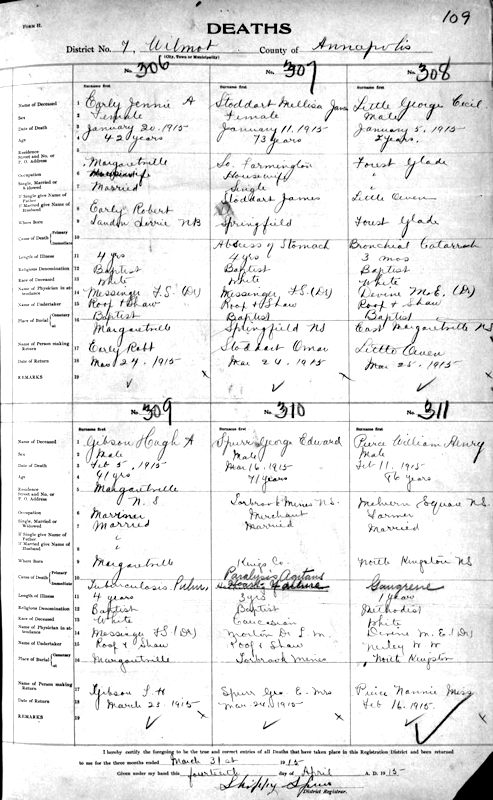 109
FORM H.
DEATHS
District No. 7, Wilmot County of Annapolis
(City, Town or Municipality)
No. 306 No. 307 No. 308
Surname first Surname first Surname first
Name of Deceased 1 Early Jennie A Stoddart Mellisa Jane Little George Cecil
Sex 2 Female Female Male
Date of Death 3 January 20. 1915 January 11. 1915 January 5. 1915
Age 4 42 years 73 years 2 years.
Residence 5
Street and No. or P. O. Address Margaretville So. Farmington Forest Glade
Occupation 6 Housewife "
Single, Married or Widowed 7 Married Single "
If Single give Name of Father 8 Stoddart James Little Owen
If Married give Name of Husband Early Robert
Where Born 9 NB Springfield Forest Glade
Cause of Death Primary Immediate 10 Abscess of Stomach Bronchial Catarrah
Length of Illness 11 4 yrs 4 yrs 3 mos
Religious Denomination 12 Baptist Baptist Baptist
Race of Deceased 13 White White White
Name of Physician in attendance 14 Messenger F.S. (Dr) Messenger F.S. (Dr) Devine M.E. (Dr)
Name of Undertaker 15 Roop & Shaw Roop & Shaw Roop & Shaw
Place of Burial Cemetery at 16 Baptist Baptist Baptist
Margaretville Springfield NS East Margaretville N.S
Name of Person making Return 17 Early Robt Stoddart Omar Little Owen
Date of Return 18 Mar 24. 1915 Mar 24. 1915 Mar 25. 1915
REMARKS 19
No. 309 No. 310 No. 311
Surname first Surname first Surname first
Name of Deceased 1 Gibson Hugh A Spurr George Edward Pierce William Henry
Sex 2 Male Male Male
Date of Death 3 Feb 5. 1915 Mar 16. 1915 Feb 11. 1915
Age 4 41 yrs 71 years 86 years
Residence 5 Margaretville
Street and No. or P. O. Address N. S Torbrook Mines N.S. Melvern Square N.S
Occupation 6 Marriner Merchant Farmer
Single, Married or Widowed 7 Married Married Married
If Single give Name of Father 8 "
If Married give Name of Husband "
Where Born 9 Margaretville Kings Co. North Kingston NS
Cause of Death Primary Immediate 10 Paralysis Agitans
Tuberculosis Pulm. Heart Failure Gangrene
Length of Illness 11 4 years 3 yrs 1 years
Religious Denomination 12 Baptist Baptist Methodist
Race of Deceased 13 White Caucasian White
Name of Physician in attendance 14 Messenger F.S. (Dr) Morton Dr L. M. Devine M. E. (Dr)
Name of Undertaker 15 Roop & Shaw Roop & Shaw Neily W W
Place of Burial Cemetery at 16 Margaretville Torbrook Mines North Kingston
Name of Person making Return 17 Gibson S. H Spurr Geo E. Mrs Pierce Nannie Miss
Date of Return 18 March 23. 1915 Mar. 24. 1915 Feb 16. 1915
REMARKS 19
I hereby certify the foregoing to be the true and correct entries of all Deaths that have taken place in this Registration District and been returned
to me for the three months ended March 31st 1915
Given under my hand this fourteenth day of April A. D. 1915
Spurr
District Registrar.